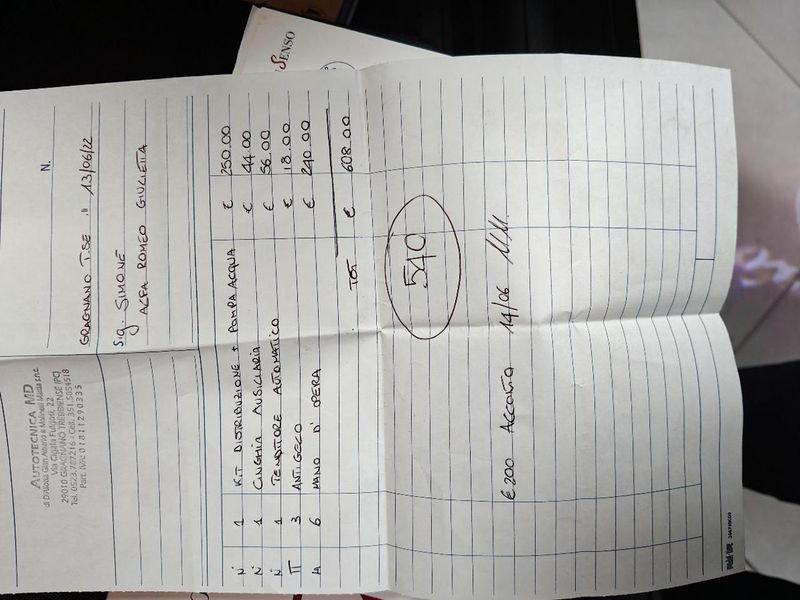 SENSO
AUTOTECNICA MD
Via Giulio Fulgosi, 22
29010 GRAGNANO TREBBIENSE (PC)
Tel. 0523.787216 - Cell. 351.5054518
Part. IVA: 01811290335
N.
GRAGNANO T.SE . li 13/06/22
Sig. SIMONE
ALFA ROMEO GIULIETTA
N 1 KIT DISTRIBUZIONE + POMPA ACQUA € 250.00
N 1 CINGHIA AUSILIARIA € 44.00
N 1 TENDITORE AUTOMATICO € 56.00
3 ANTIGELO € 18.00
H 6 MANO D'OPERA € 240.00
TOT € 608.00
540
€ 200 ACCONTO 14/06